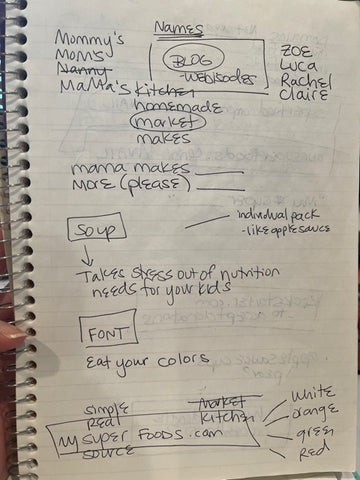 Names
Mommy's
Mom's
Nanny
Mama's Kitchen
BLOG
WEBISODES
ZOE
Luca
Rachel
Claire
homemade
market
makes
mama makes
More (please)
Soup
individual pack
-like applesauce
Takes stress out of nutrition
needs for your kids
FONT
Eat your colors
simple
Real
my SUPER FOODS.com
source
market
kitchen
White
orange
green
Red